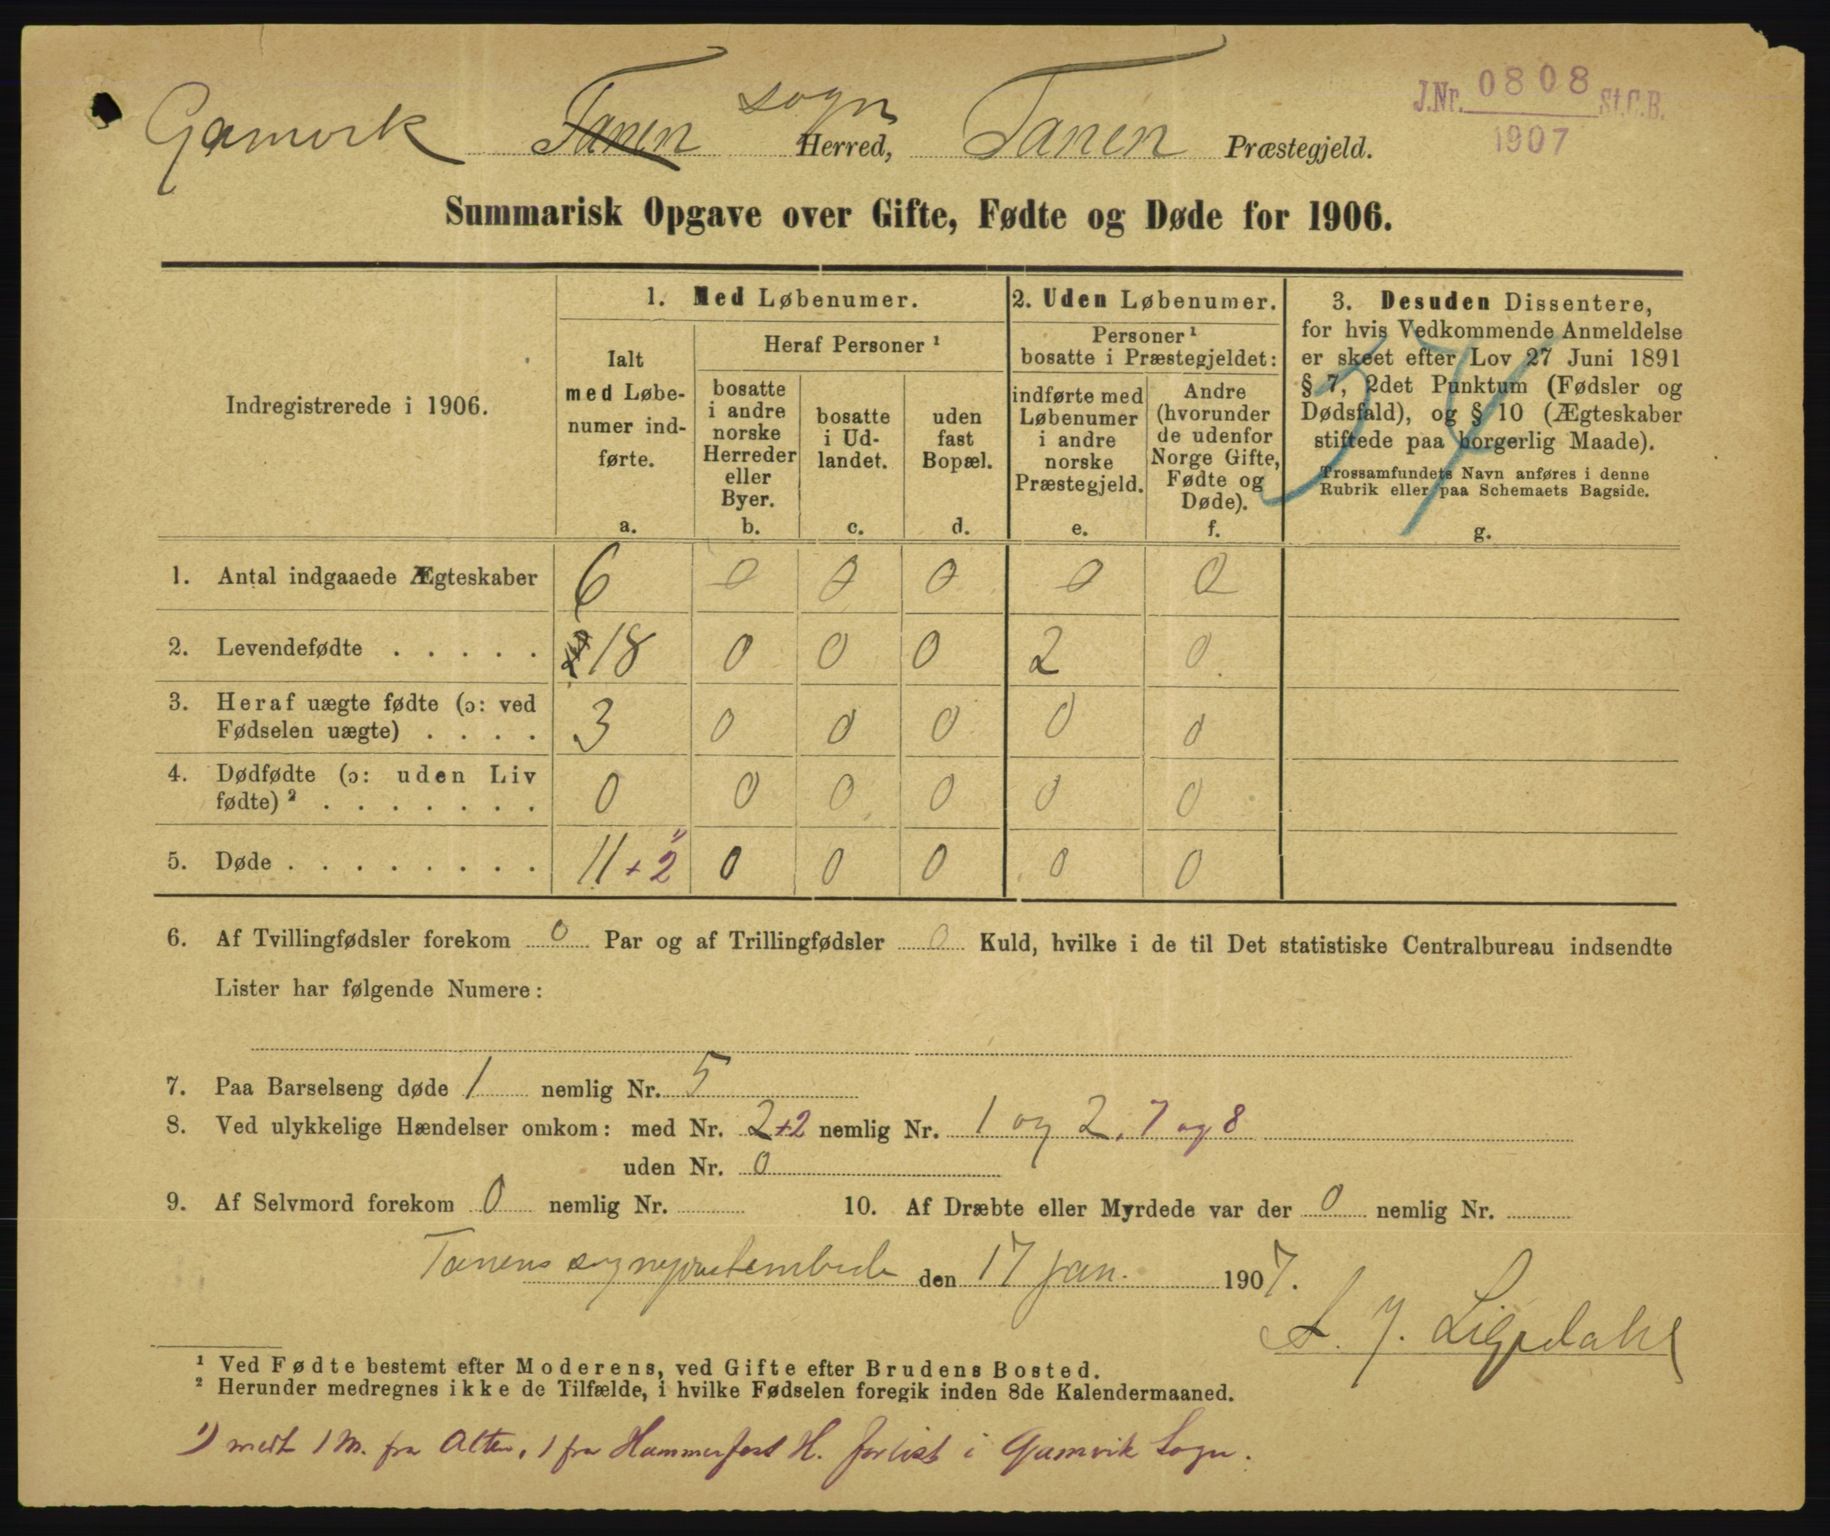 J.Nr. 0808 St.C.B.
1907
Gamvik Tanen sogn Herred, Tanen Præstegjeld.
Summarisk Opgave over Gifte, Fødte og Døde for 1906.
Indregistrerede i 1906.
1. Med Løbenumer.
Ialt
med Løbe-
numer ind-
førte.
a.
Heraf Personer ¹
bosatte
i andre
norske
Herreder
eller
Byer.
b.
bosatte
i Ud-
landet.
c.
uden
fast
Bopæl.
d.
2. Uden Løbenumer.
Personer ¹
bosatte i Præstegjeldet:
indførte med
Løbenumer
i andre
norske
Præstegjeld.
e.
Andre
(hvorunder
de udenfor
Norge Gifte,
Fødte og
Døde).
f.
3. Desuden Dissentere,
for hvis Vedkommende Anmeldelse
er skeet efter Lov 27 Juni 1891
§ 7, 2det Punktum (Fødsler og
Dødsfald), og § 10 (Ægteskaber
stiftede paa borgerlig Maade).
Trossamfundets Navn anføres i denne
Rubrik eller paa Schemaets Bagside.
g.
1. Antal indgaaede Ægteskaber 6 0 0 0 0 0
2. Levendefødte . . . . . 18 0 0 0 2 0
3. Heraf uægte fødte (ɔ: ved
Fødselen uægte) . . . . 3 0 0 0 0 0
4. Dødfødte (ɔ: uden Liv
fødte) ² . . . . . . . 0 0 0 0 0 0
5. Døde . . . . . . . . 11 + 2 ¹⁾ 0 0 0 0 0
6. Af Tvillingfødsler forekom 0 Par og af Trillingfødsler 0 Kuld, hvilke i de til Det statistiske Centralbureau indsendte
Lister har følgende Numere:
7. Paa Barselseng døde 1 nemlig Nr. 5
8. Ved ulykkelige Hændelser omkom: med Nr. 2 +2 nemlig Nr. 1 og 2, 7 og 8
uden Nr. 0
9. Af Selvmord forekom 0 nemlig Nr. 10. Af Dræbte eller Myrdede var der 0 nemlig Nr.
Tanens sogneprestembede den 17 jan. 1907.
¹ Ved Fødte bestemt efter Moderens, ved Gifte efter Brudens Bosted.
² Herunder medregnes ikke de Tilfælde, i hvilke Fødselen foregik inden 8de Kalendermaaned.
¹⁾ medt 1 M. fra Alten, 1 fra Hammerfest H. forlist i Gamvik Sogn.